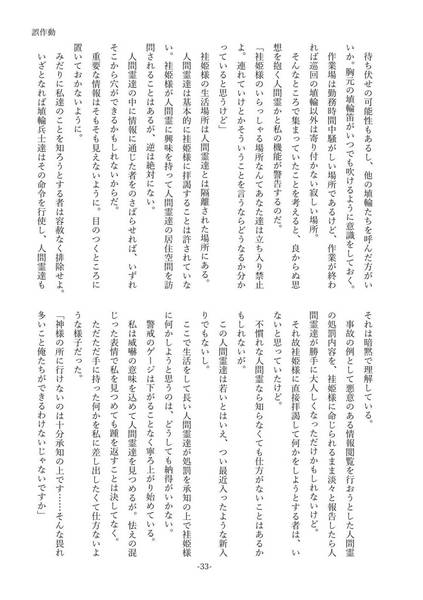 誤作動
待ち伏せの可能性もあるし、他の埴輪たちを呼んだ方がい
いか。胸元の埴輪笛がいつでも吹けるように意識をしておく。
作業場は勤務時間中騒がしい場所であるけど、作業が終わ
れば巡回の埴輪以外は寄り付かない寂しい場所。
そんなところで集まっていたことを考えると、良からぬ思
想を抱く人間霊かと私の機能が警告するのだ。
「袿姫様のいらっしゃる場所なんてあなた達は立ち入り禁止
よ。連れていけとかそういうことを言うならどうなるか分か
っていると思うけど」
袿姫様の生活場所は人間霊達とは隔離された場所にある。
人間霊達は基本的に袿姫様に拝謁することは許されていな
い。袿姫様が人間霊に興味を持って人間霊達の居住空間を訪
問されることはあるが、逆は絶対にない。
人間霊達の中に情報に通じた者をのさばらせれば、いずれ
そこから穴ができるかもしれないからだ。
重要な情報はそもそも見えないように。目のつくところに
置いておかないように。
みだりに私達のことを知ろうとする者は容赦なく排除せよ。
いざとなれば埴輪兵士達はその命令を行使し、人間霊達も
それは暗黙で理解している。
事故の例として悪意のある情報閲覧を行おうとした人間霊
の処罰内容を、袿姫様に命じられるまま淡々と報告したら人
間霊達が勝手に大人しくなっただけかもしれないけど。
それ故袿姫様に直接拝謁して何かをしようとする者は、い
ないと思っていたけど。
不慣れな人間霊なら知らなくても仕方がないことはあるか
もしれないが、
この人間霊達は若いとはいえ、つい最近入ったような新入
りでもない。
ここで生活をして長い人間霊達が処罰を承知の上で袿姫様
に何かしようと思うのは、どうしても納得がいかない。
警戒のゲージは下がることなく寧ろ上がり始めている。
私は威嚇の意味を込めて人間霊達を見つめるが。怯えの混
じった表情で私を見つめても踵を返すことは決してなく、
ただただ手に持った何かを私に差し出したくて仕方ないよ
うな様子だった。
「神様の所に行けないのは十分承知の上です……そんな畏れ
多いこと俺たちができるわけないじゃないですか」
-33-